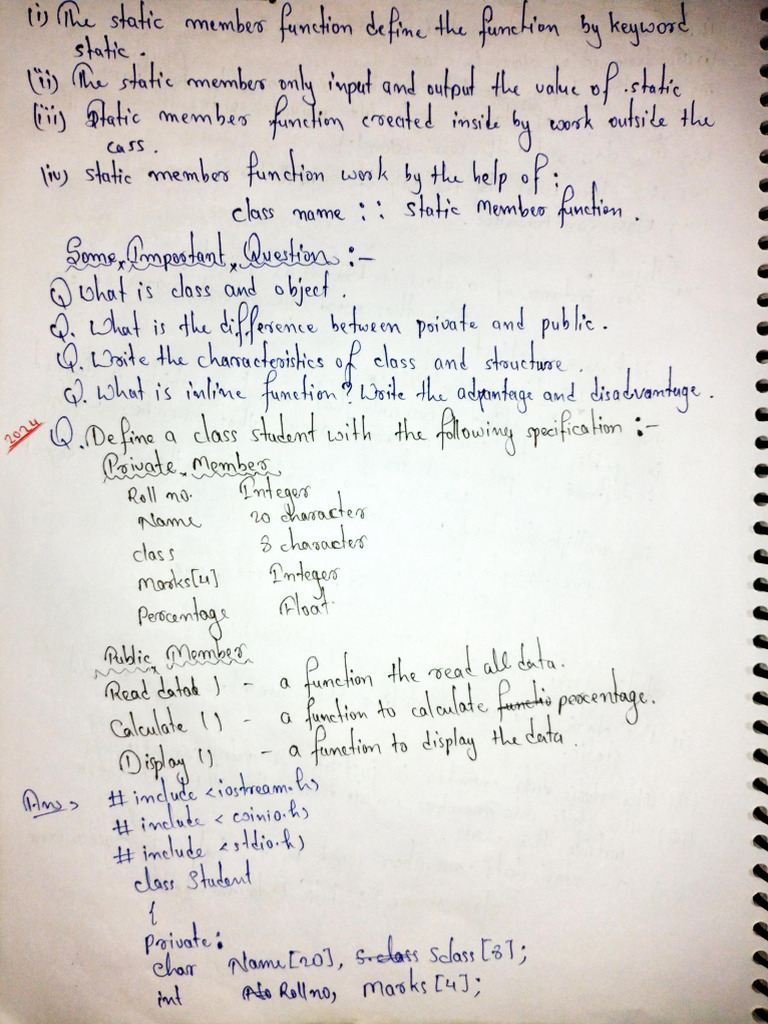 (i) The static member function define the function by keyword
static.
(ii) The static member only input and output the value of static
(iii) Static member function created inside by work outside the
cass.
(iv) static member function work by the help of :
class name :: static member function.
Some Important Question :-
Q What is class and object.
Q. What is the difference between private and public.
Q. Write the characteristics of class and structure.
Q. What is inline function? Write the advantage and disadvantage.
2024 Q. Define a class student with the following specification :-
Private Member
Roll no. Integer
Name 20 character
class 8 character
Marks[4] Integer
Percentage Float
Public Member
Read data( ) - a function the read all data.
Calculate () - a function to calculate percentage.
Display () - a function to display the data.
Ans > # include <iostream.h>
# include <conio.h>
# include <stdio.h>
class Student
{
private:
char Name[20], Sclass[8];
int Rollno, Marks[4];